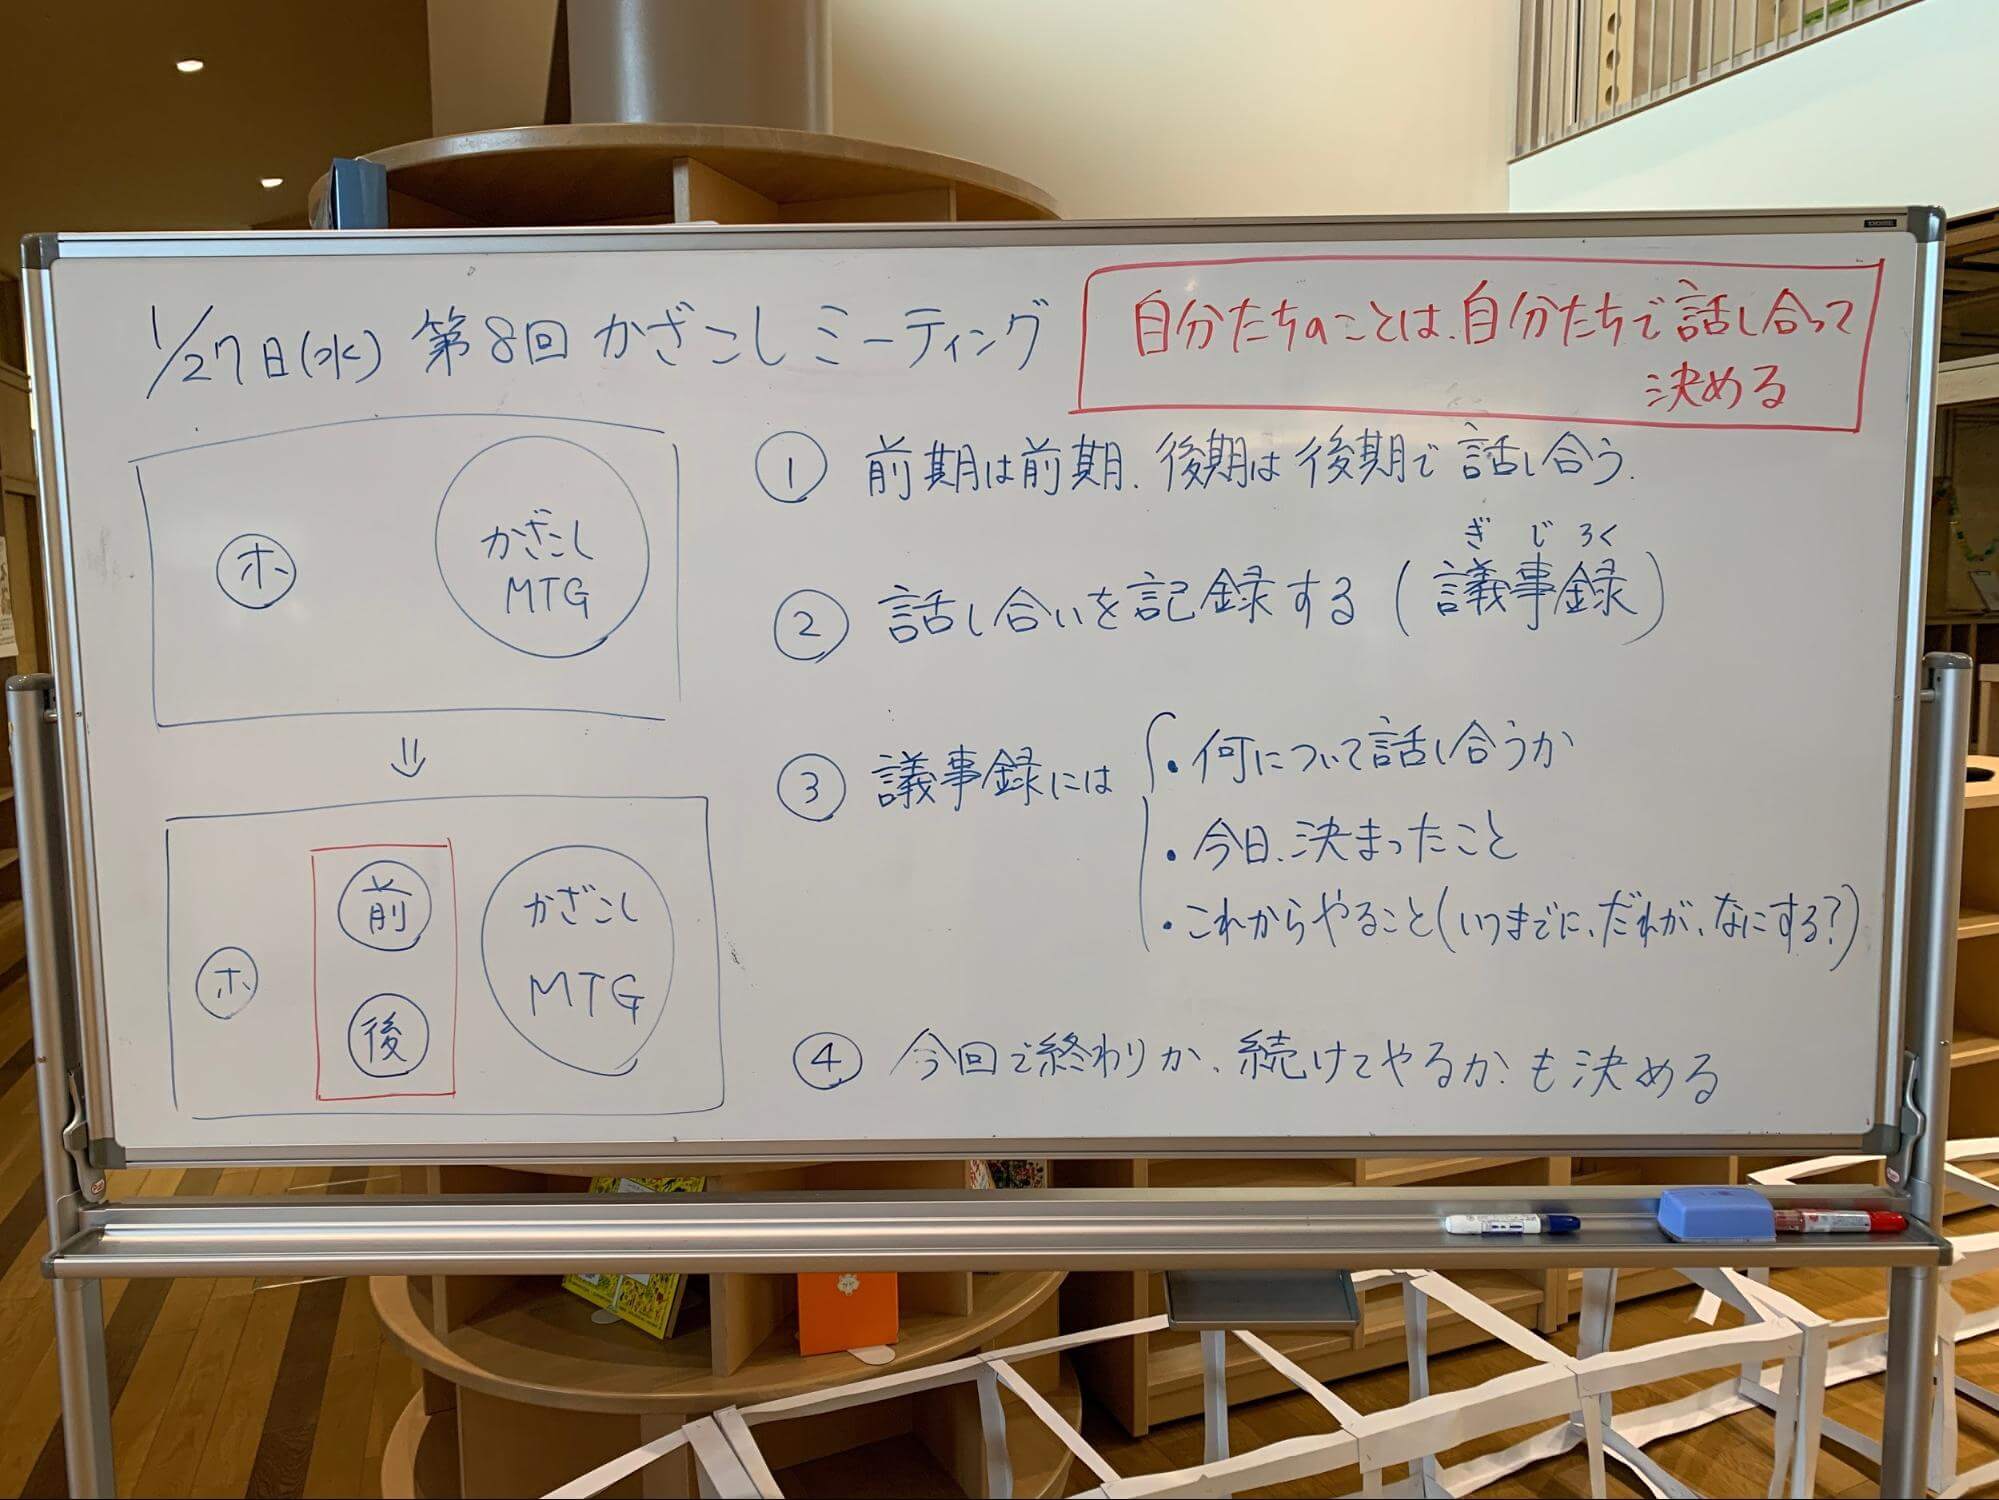 1/27日(水) 第8回 かざこしミーティング
自分たちのことは、自分たちで話し合って
決める
ホ
かざこし
MTG
⇓
ホ
前
後
かざこし
MTG
① 前期は前期、後期は後期で話し合う。
ぎじろく
② 話し合いを記録する(議事録)
③ 議事録には
・何について話し合うか
・今日、決まったこと
・これからやること(いつまでに、だれが、なにする?)
④ 今回で終わりか、続けてやるか、も決める